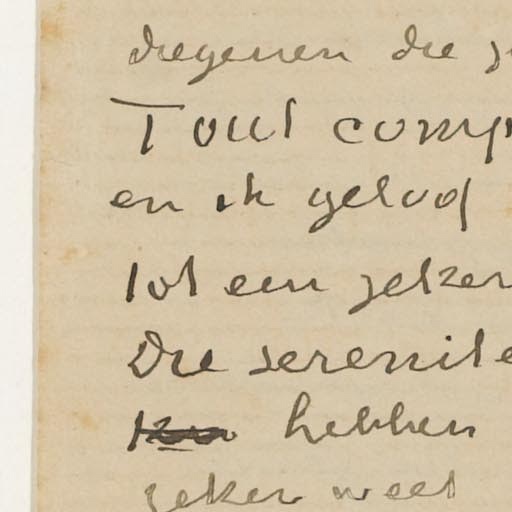 diegenen die
Tout comp
en ik geloof
tot een zeker
Die serenite
hebben
zeker weet